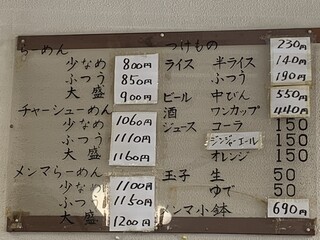 らーめん
少なめ 800円
ふつう 850円
大盛 900円
チャーシューめん
少なめ 1060円
ふつう 1110円
大盛 1160円
メンマらーめん
少なめ 1100円
ふつう 1150円
大盛 1200円
つけもの 230円
ライス 半ライス 140円
ふつう 190円
ビール 中びん 550円
酒 ワンカップ 440円
ジュース コーラ 150
ジンジャーエール 150
オレンジ 150
玉子 生 50
ゆで 50
ンマ小鉢 690円